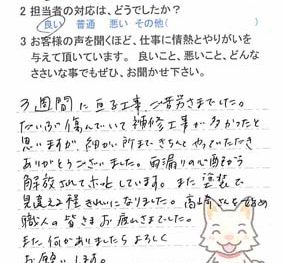 2 担当者の対応は、どうでしたか?
良い 普通 悪い その他( )
3 お客様の声を聞くほど、仕事に情熱とやりがいを
与えて頂いています。 良いこと、悪いこと、どんな
ささいな事でもぜひ、お聞かせ下さい。
3週間に亘る工事、ご苦労さまでした。
だいぶ傷んでいて補修工事が多かったと
思いますが、細かい所まできちんとやっていただき
ありがとうございました。雨漏りの心配から
解放されてホッとしています。また塗装で
見違える程きれいになりました。高山奇さんを始め
職人の皆さまお疲れさまでした。
また何かありましたらよろしく
お願いします。